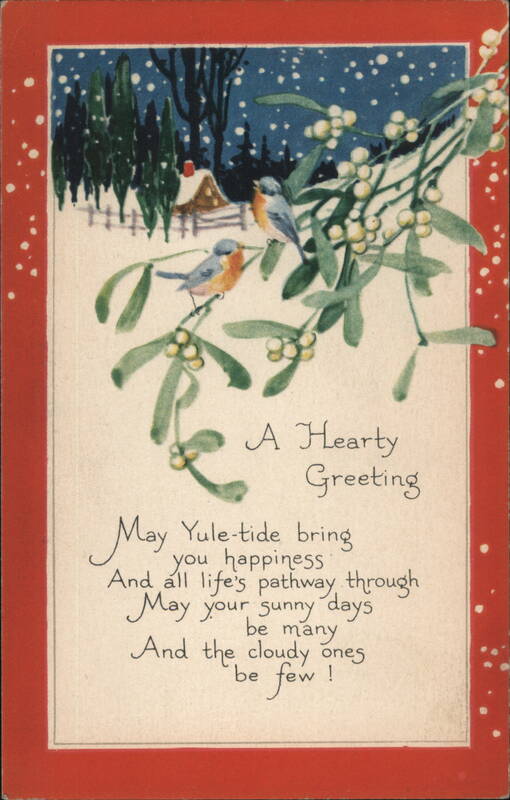 A Hearty
Greeting
May Yule-tide bring
you happiness
And all life's pathway through
May your sunny days
be many
And the cloudy ones
be few !